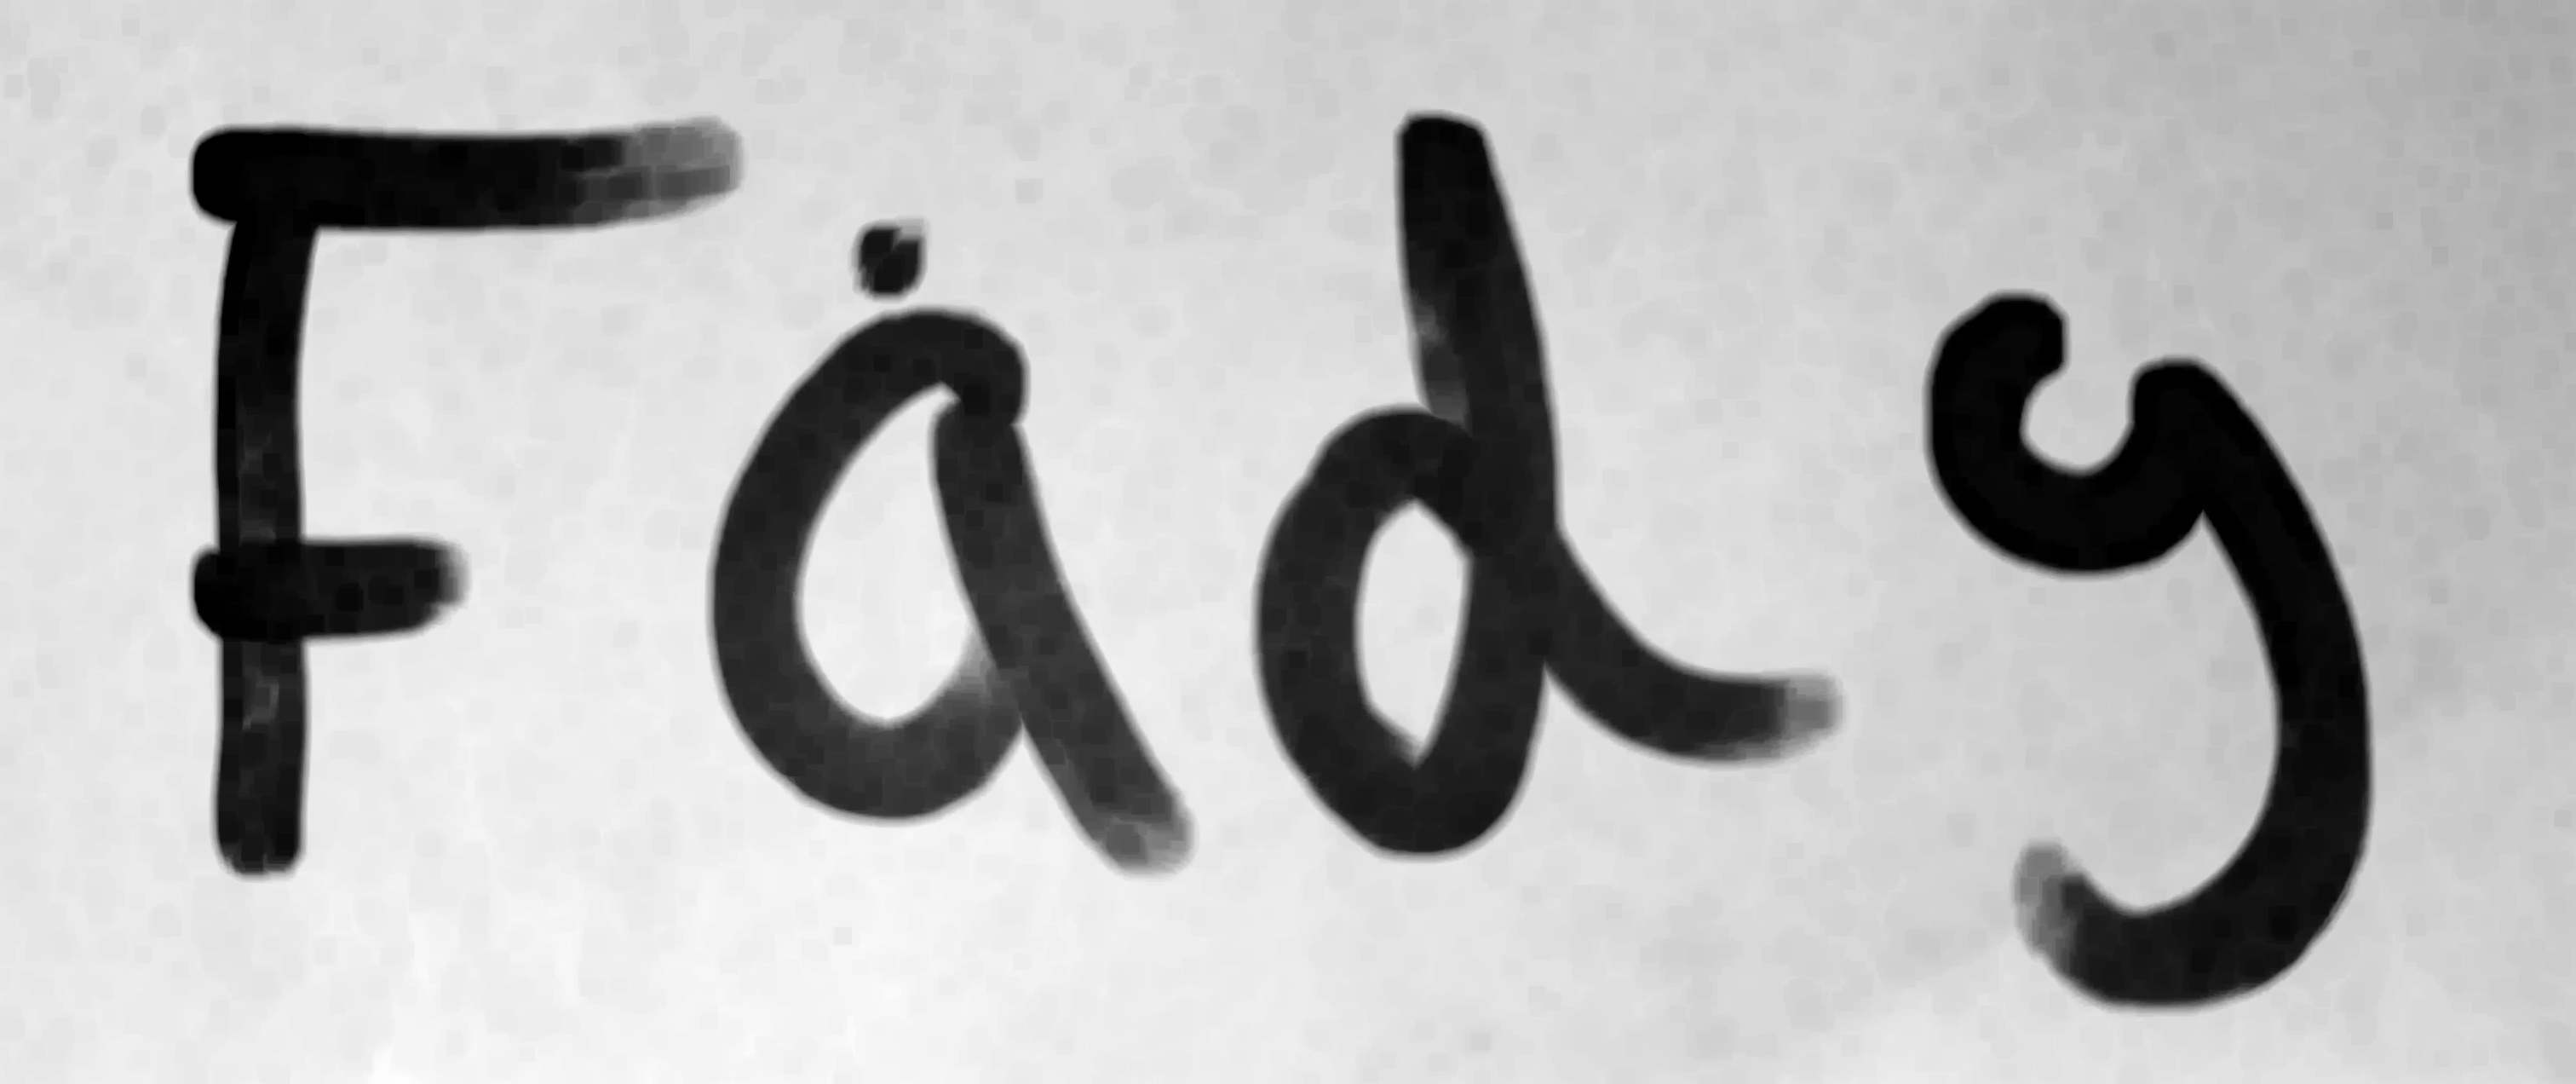 Fȧdy